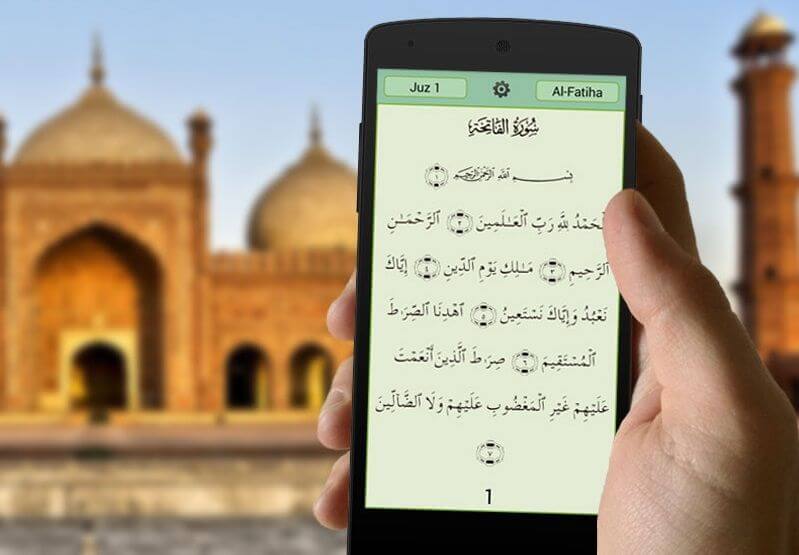 Juz 1
Al-Fatiha
سُورَةُ الفَاتِحَةِ
بِسْمِ اللَّهِ الرَّحْمَٰنِ الرَّحِيمِ ١
ٱلْحَمْدُ لِلَّهِ رَبِّ ٱلْعَـٰلَمِينَ ٢ ٱلرَّحْمَـٰنِ
ٱلرَّحِيمِ ٣ مَـٰلِكِ يَوْمِ ٱلدِّينِ ٤ إِيَّاكَ
نَعْبُدُ وَإِيَّاكَ نَسْتَعِينُ ٥ ٱهْدِنَا ٱلصِّرَٰطَ
ٱلْمُسْتَقِيمَ ٦ صِرَٰطَ ٱلَّذِينَ أَنْعَمْتَ
عَلَيْهِمْ غَيْرِ ٱلْمَغْضُوبِ عَلَيْهِمْ وَلَا ٱلضَّآلِّينَ
٧
1